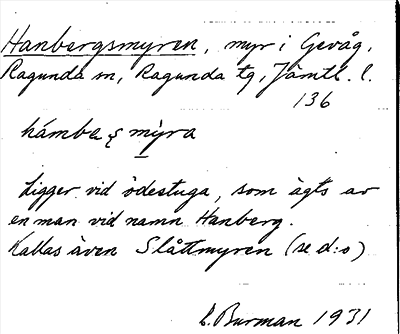 Hanbergsmyren, myr i Gevåg,
Ragunda sn, Ragunda tg, Jämtl. l.
136
hámbæṣ mỳra
Ligger vid ödestuga, som ägts av
en man vid namn Hanberg.
Kallas även Slåttmyren (se d:o)
L. Burman 1931